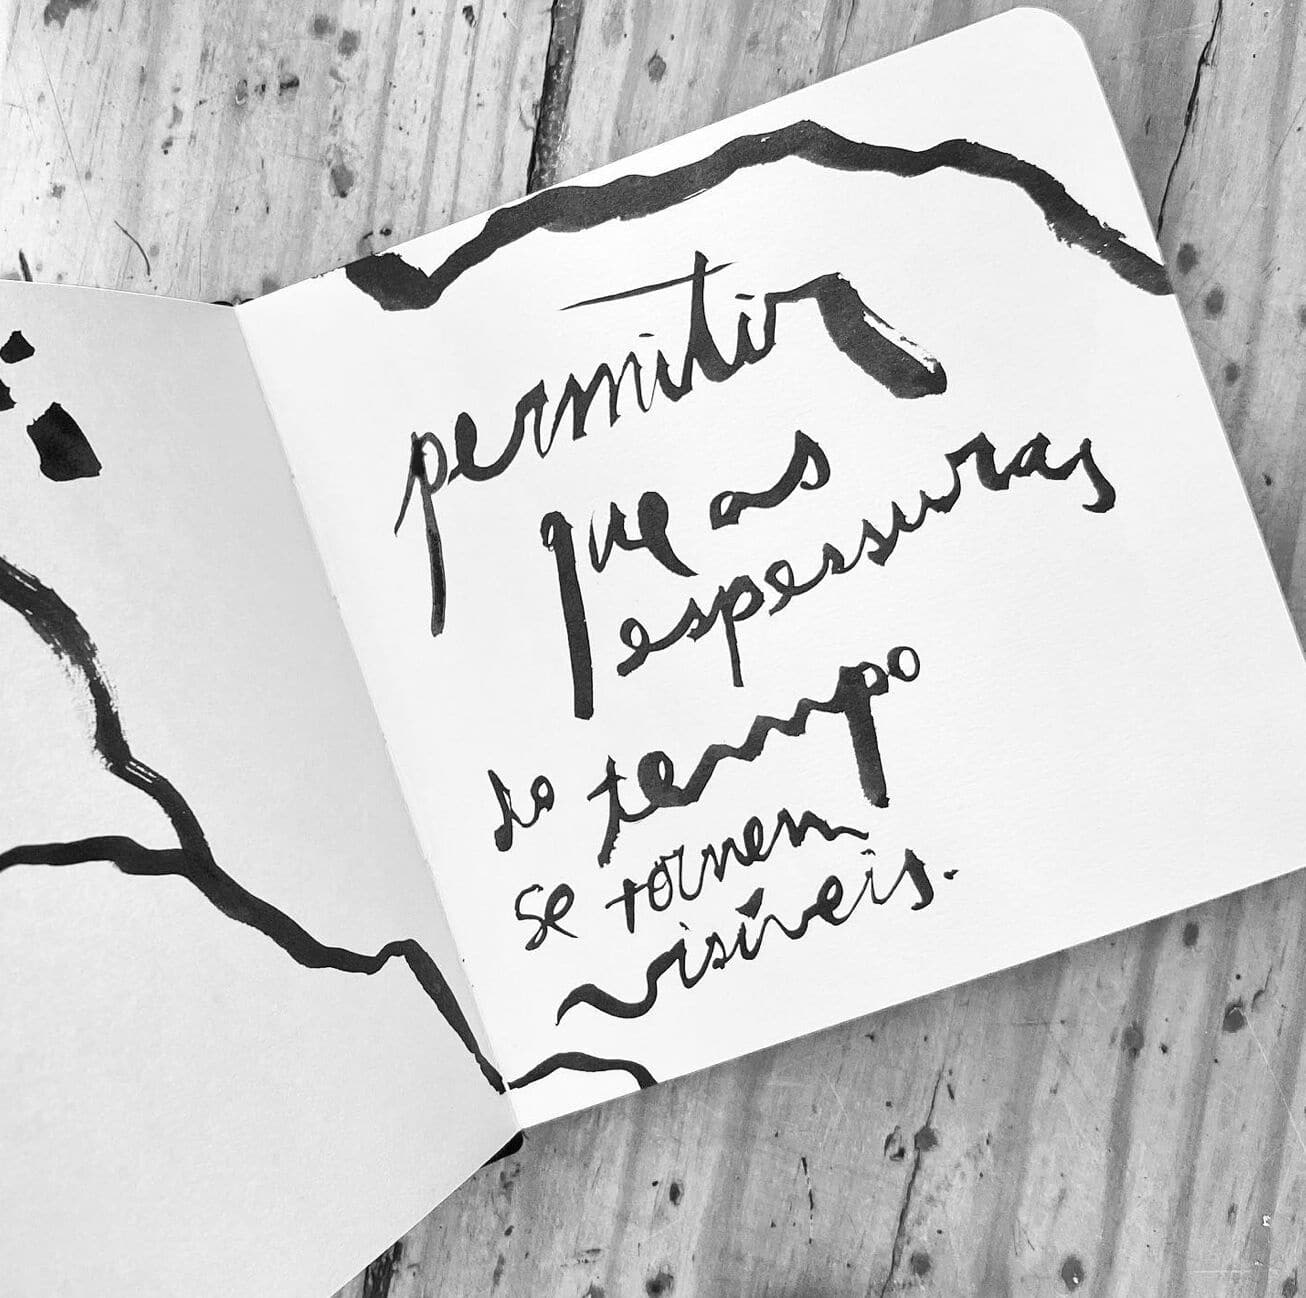 permitir
que as
espessuras
do tempo
se tornem
visíveis.